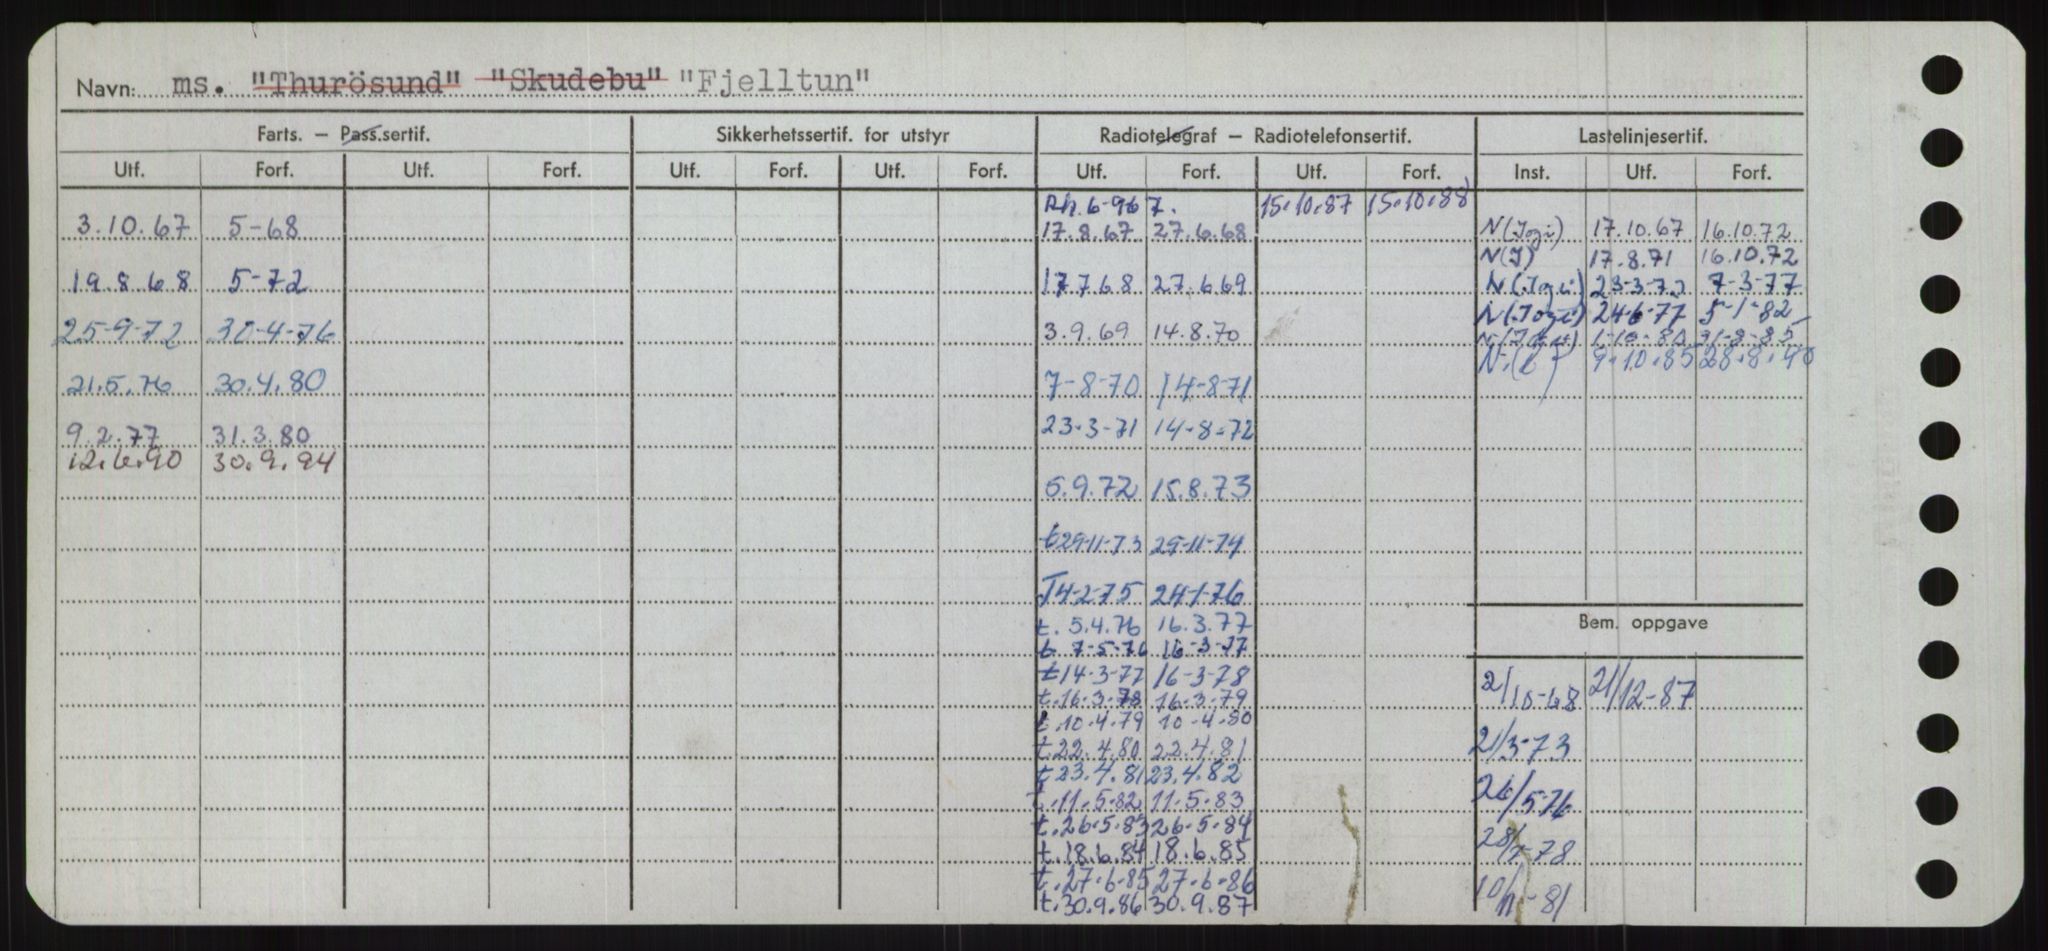 Navn: ms. "Thurösund" "Skudebu" "Fjelltun"
Farts. — Pass.sertif. Sikkerhetssertif. for utstyr Radiotelegraf — Radiotelefonsertif. Lastelinjesertif.
Utf. Forf. Utf. Forf. Utf. Forf. Utf. Forf. Utf. Forf. Utf. Forf. Inst. Utf. Forf.
6-967. 15.10.87 15.10.88
3.10.67 5-68 17.8.67 27.6.68 N(Jogi) 17.10.67 16.10.72
N(J) 17.8.71 16.10.72
19.8.68 5-72 17768 27.669 N(Jogi) 23-3-72 7-3-77
N(Jogi) 24-6-77 5-1-82
25-9-72 30-4-76 3.9.69 14.8.70
9.10.85 28.8.90
21.5.76 30.4.80 7-8-70 14-8-71
9.2.77 31.3.80 23-3-71 14-8-72
12.6.90 30.9.94
5.9.72 15.8.73
t 29-11-73 29-11-74
T4-2-75 24-1-76
t. 5.4.76 16.3.77
Bem. oppgave
t 7-5-76 16-3-77
t 14-3-77 16-3-78
2/10-68 21/12-87
t.16.3.78 16.3.79
t.10.4.79 10-4.80
t.22.4.80 22.4.81
21/3-73
t 23.4.81 23.4.82
t.11.5.82 11.5.83
26/5-76
t.26.5.83 26.5.84
t.18.6.84 18.6.85
28/7-78
t.27.6.85 27.6.86
t.30.9.86 30.9.87
10/11-81